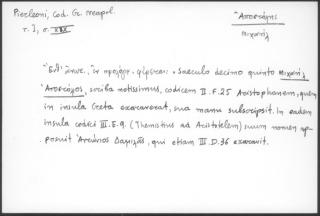 Pierleoni, Cod. Gr. neapol.
Ἀποστόλης
τ. I, σ. XIX
Μιχαήλ
"Ἔνθ' ἀνωτ., ἐν προλόγ. φέρεται: «Saeculo decimo quinto Μιχαήλ
Ἀποστόλης, scriba notissimus, codicem II.F.25 Aristophanem, quem
in insula Creta exaraverat, sua manu subscripsit. In eadem
insula codici III.E.9. (Themistius ad Aristotelem) suum nomen ap
posuit Ἀντώνιος Δαμιλᾶς, qui etiam III.D.36 exaravit.